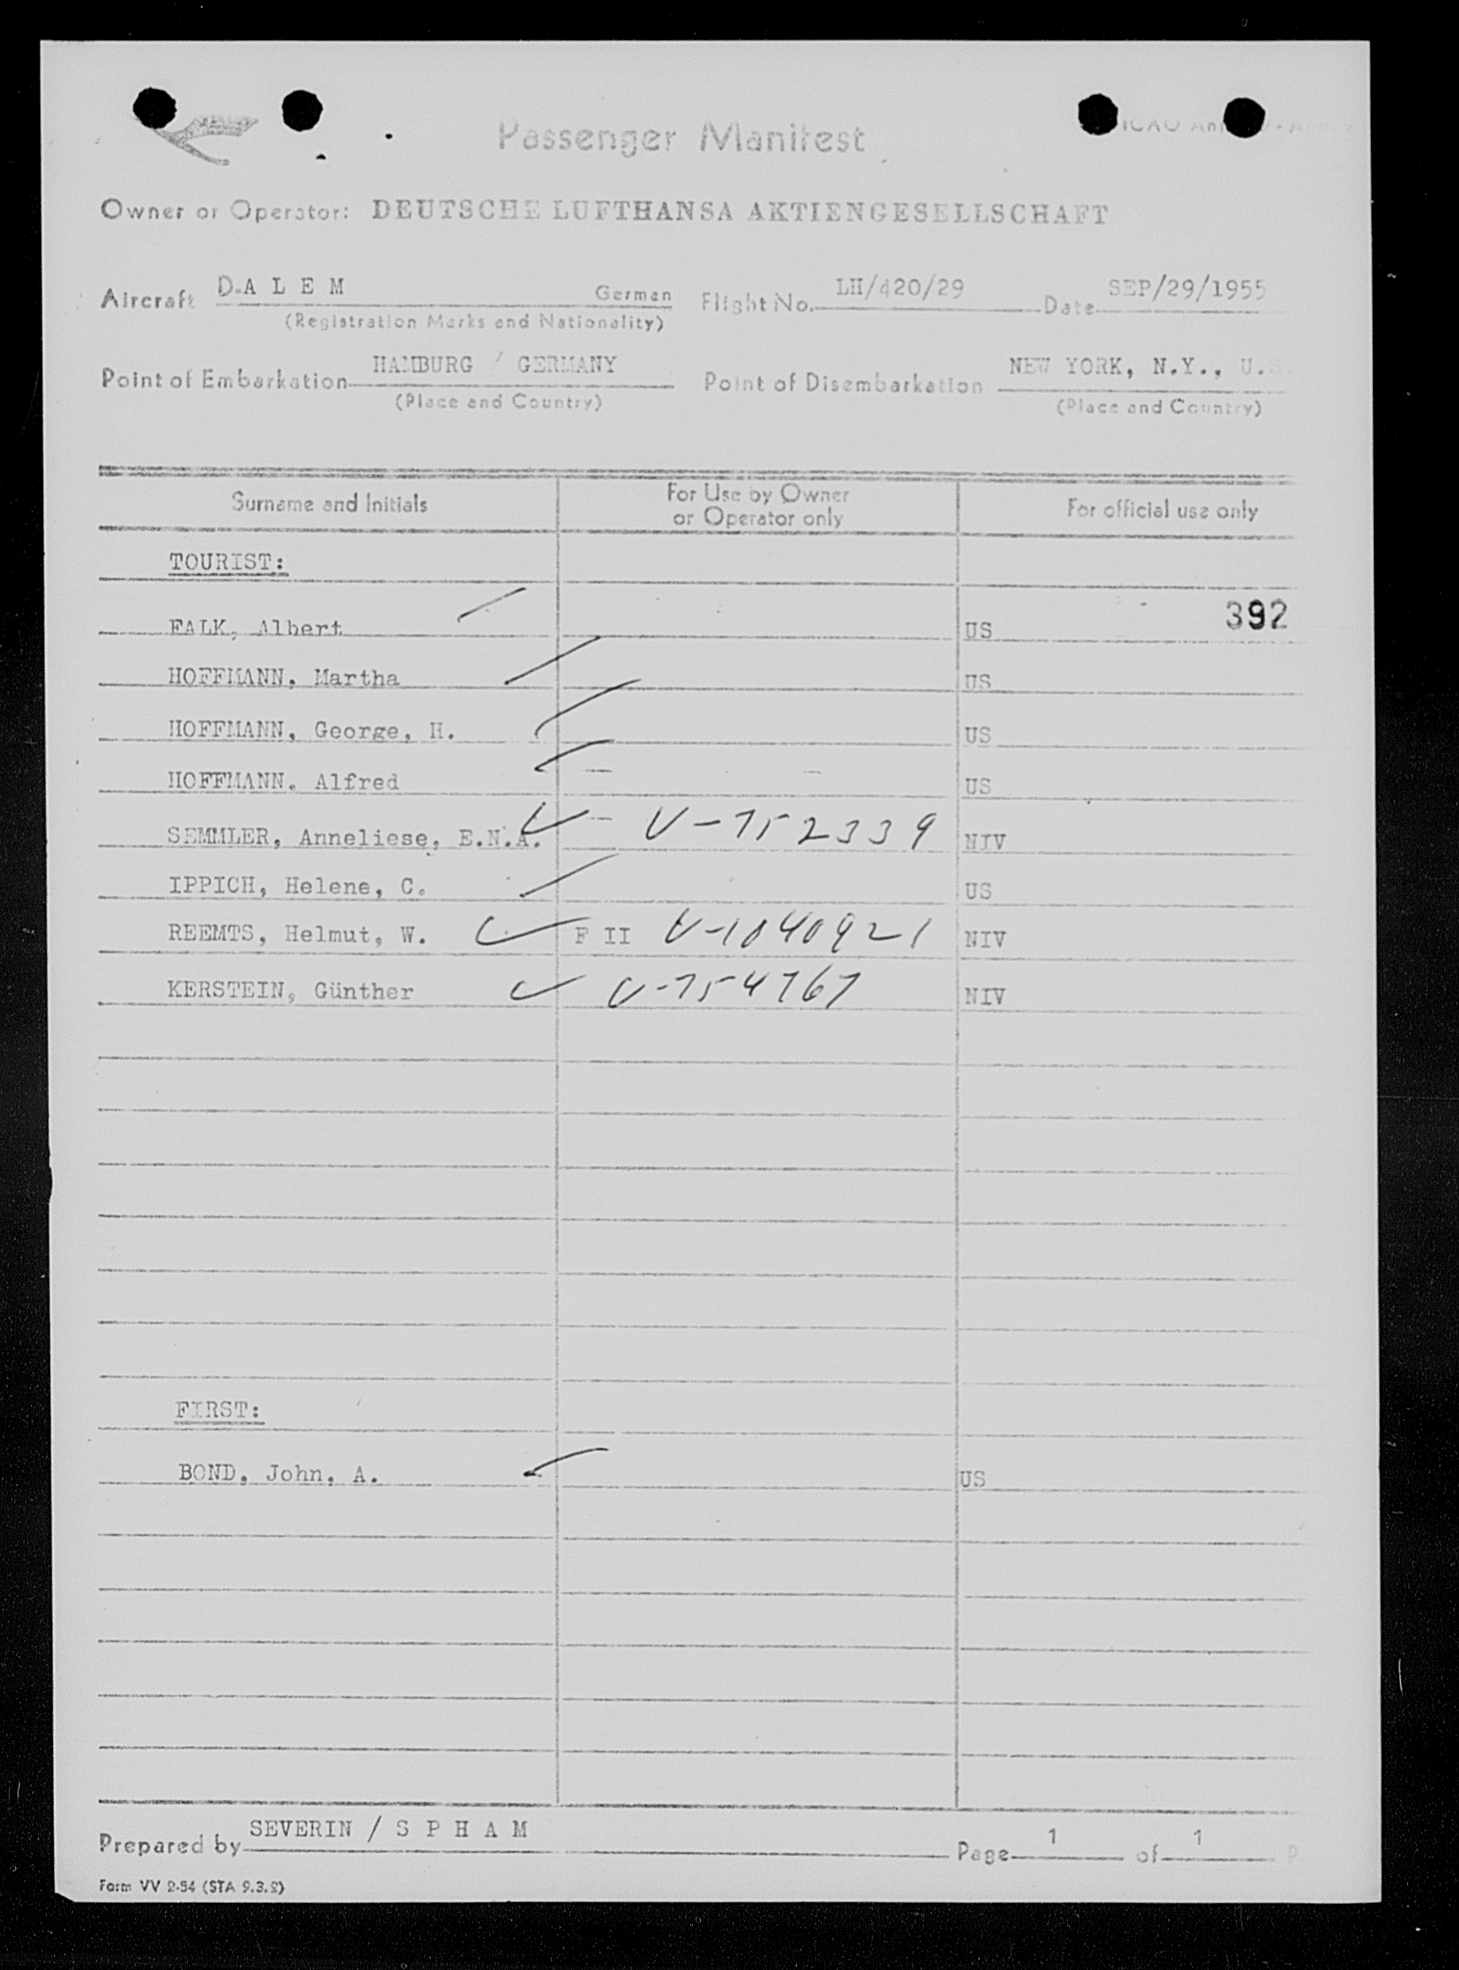 Passenger Manifest
ICAO An
Owner or Operator: DEUTSCHE LUFTHANSA AKTIENGESELLSCHAFT
Aircraft D-A L E M German Flight No. LH/420/29 Date SEP/29/1955
(Registration Marks and Nationality)
Point of Embarkation HAMBURG / GERMANY Point of Disembarkation NEW YORK, N.Y., U.S.
(Place and Country) (Place and Country)
Surname and Initials For Use by Owner or Operator only For official use only
TOURIST:
FALK, Albert US 392
HOFFMANN, Martha US
HOFFMANN, George, H. US
HOFFMANN, Alfred US
SEMMLER, Anneliese, E.N.A. V-752339 NIV
IPPICH, Helene, C. US
REEMTS, Helmut, W. F II V-1040921 NIV
KERSTEIN, Günther V-754767 NIV
FIRST:
BOND, John, A. US
Prepared by SEVERIN / S P H A M Page 1 of 1 P
Form VV 2-54 (STA 9.3.2)